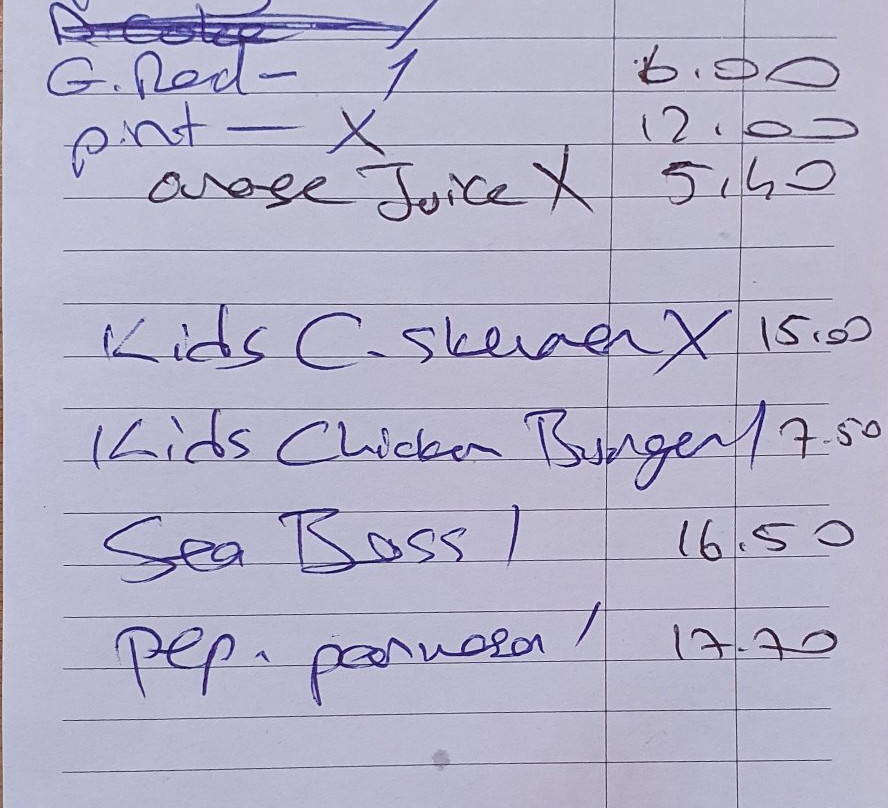 G. Red - 1 6.00
pint - X 12.00
orose Juice X 5.40
Kids C. skewer X 15.00
Kids Chicken Burger / 7.50
Sea Bass / 16.50
pep. / 17.70